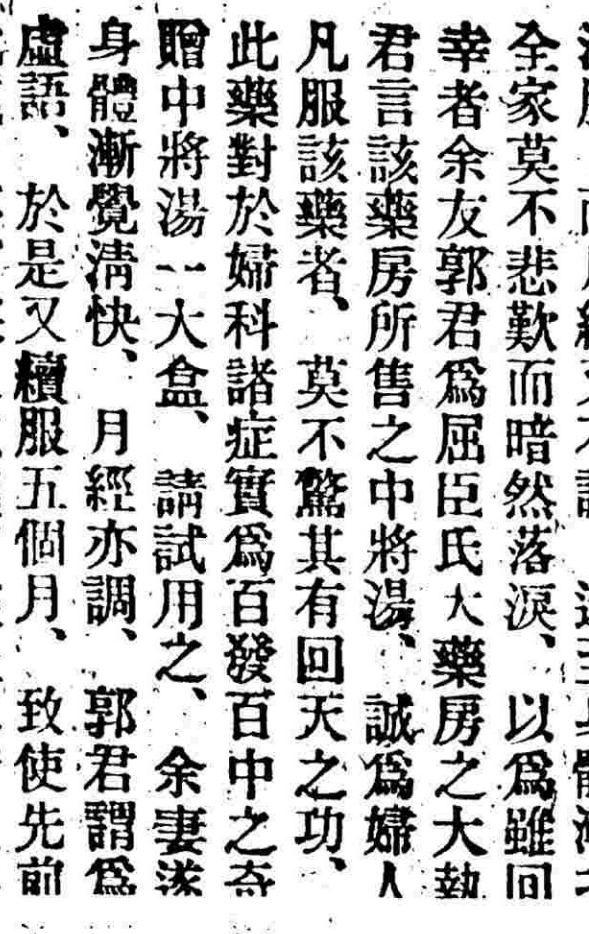 全家莫不悲歎而暗然落淚、以爲雖回
幸者余友郭君爲屈臣氏大藥房之大執
君言該藥房所售之中將湯、誠爲婦人
凡服該藥者、莫不驚其有回天之功、
此藥對於婦科諸症實爲百發百中之奇
贈中將湯一大盒、請試用之、余妻遂
身體漸覺淸快、月經亦調、郭君謂爲
虛語、於是又續服五個月、致使先前